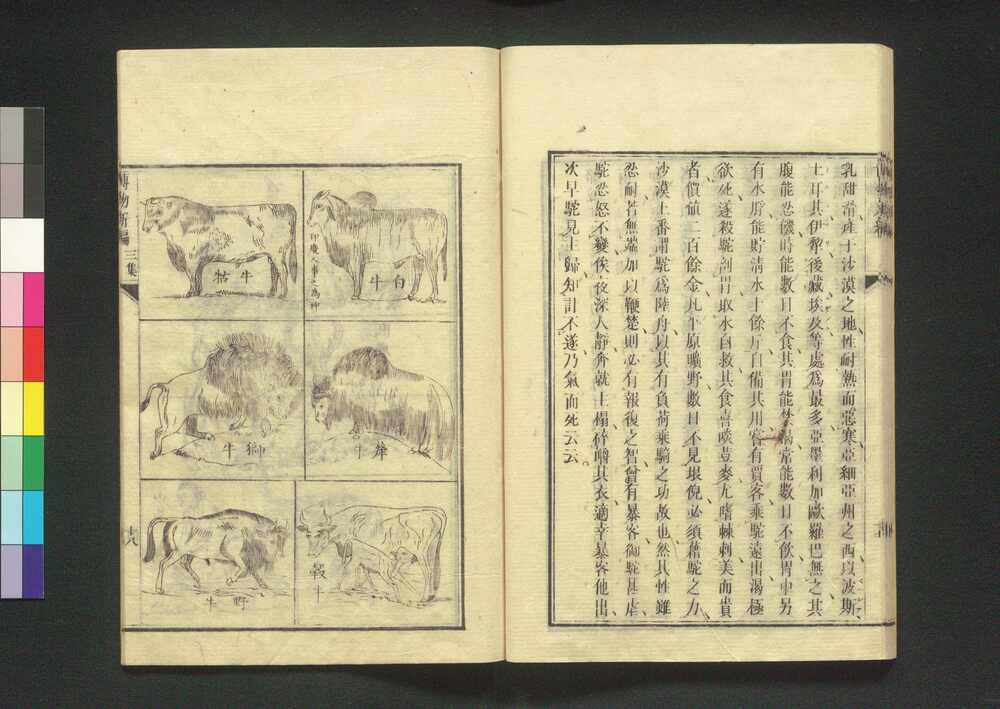 乳甜滑產于沙漠之地性耐熱而惡寒亞細亞州之西以波斯
土耳其伊犂後藏埃及等處爲最多亞墨利加歐羅巴無之其
腹能忍饑時能數日不食其胃能禁渴常能數日不飲胃中另
有水脬能貯淸水十餘斤自備其用嘗有賈客乘駝遠出渴極
欲死遂殺駝剖胃取水自救其食喜啖荳麥尤嗜棘刺美而貴
者價値二百餘金凡平原曠野數日不見垠倪必須藉駝之力
沙漠土番謂駝爲陸舟以其有負荷乘騎之功故也然其性雖
忍耐若無端加以鞭楚則必有報復之智曾有暴客御駝甚虐
駝忍怒不變俟夜深人靜奔就主榻碎嚼其衣適幸暴客他出
次早駝見主歸知計不遂乃氣而死云云
白牛
印度人事之爲神
牛牯
犛牛
獅牛
牛
野牛
博物新編
三集
十八